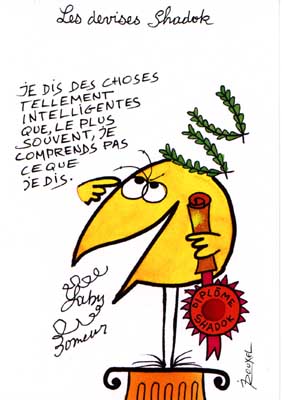 Les devises Shadok
JE DIS DES CHOSES
TELLEMENT
INTELLIGENTES
QUE, LE PLUS
SOUVENT, JE
COMPRENDS PAS
CE QUE
JE DIS.
Gaby
Zomeur
DIPLÔME
SHADOK
ROUXEL